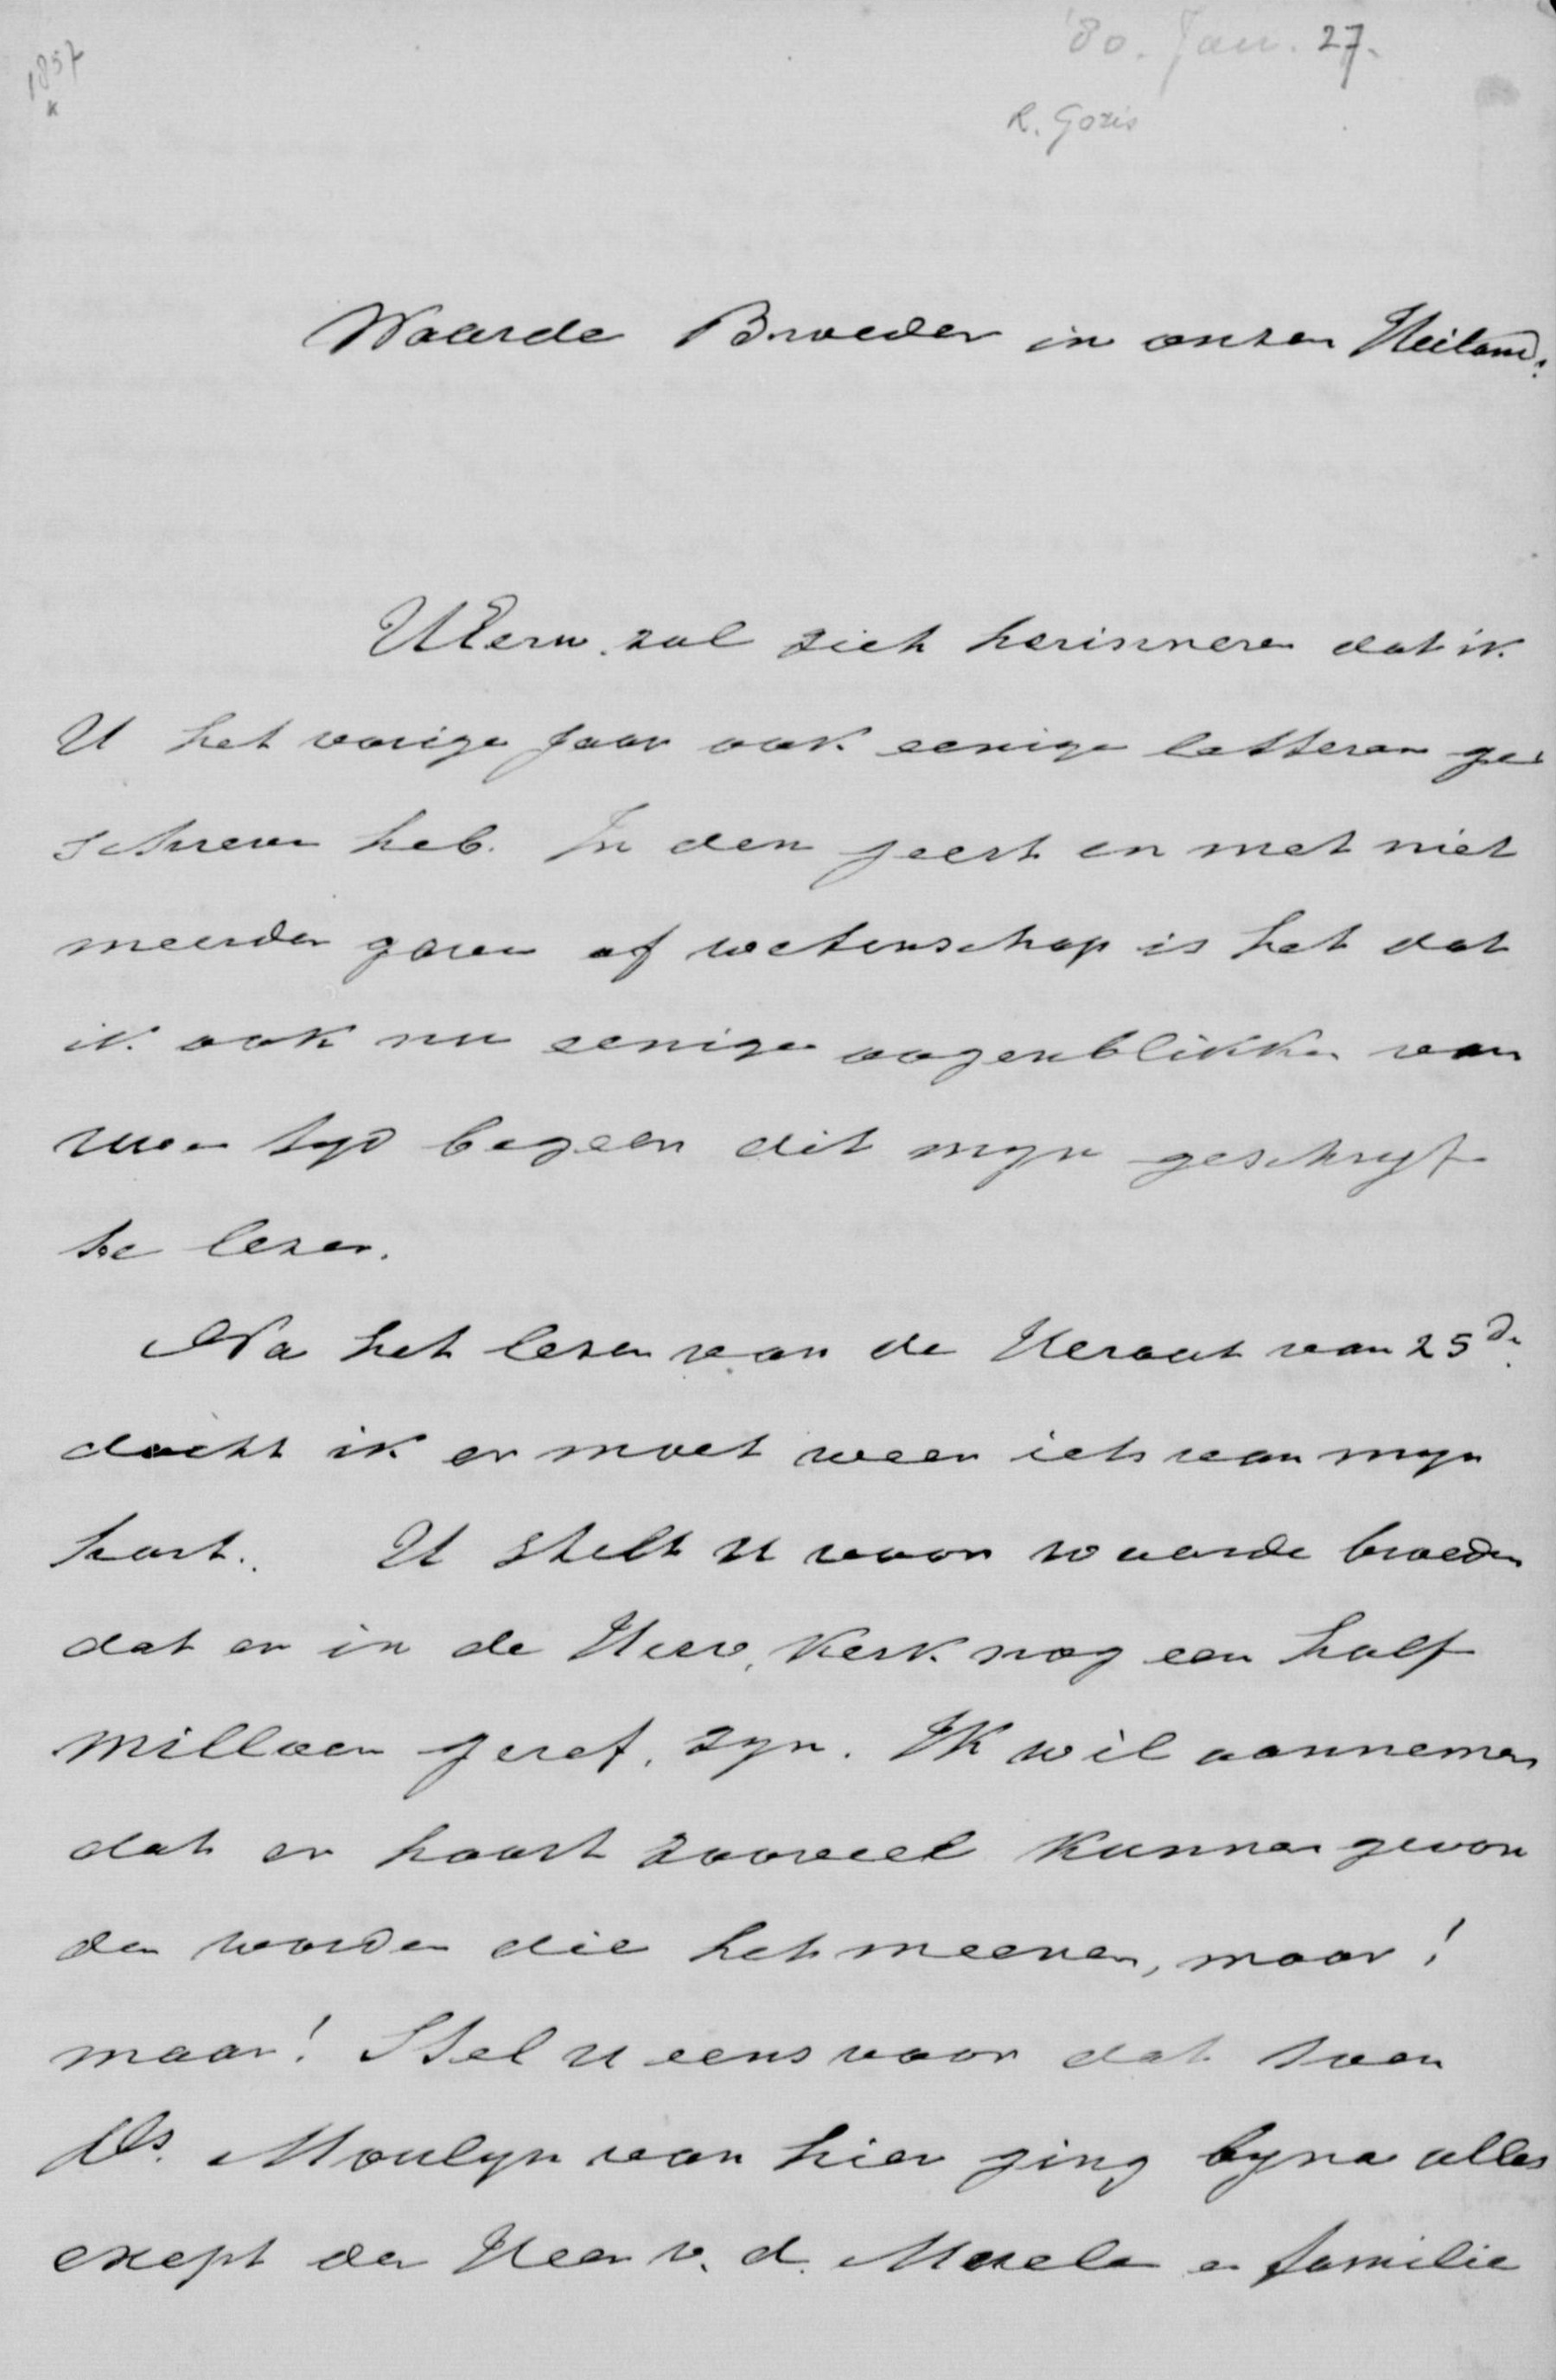 1857
'80. Jan. 27.
R. Goris
Waarde Broeder in onzen Heiland.
UEerw. zal zich herinneren dat ik
U het vorige Jaar ook eenige letteren ge=
schreven heb. In den geest en met niet
meerder gaven of wetenschap is het dat
ik ook nu eenige oogenblikken van
uwen tyd begeer dit myn geschryf
te lezen.
Na het lezen van de Heraut van 25de
dacht ik er moet weer iets van myn
hart. U stelt u voor waarde broeder
dat er in de Herv. Kerk nog een half
millioen geref. zyn. Ik wil aannemen
dat er haast zooveel kunnen gevon
den worden die het meenen, maar!
maar! Stel u eens voor dat toen
Ds. Moulyn van hier ging byna alles
exept den Heer v. d. en familie